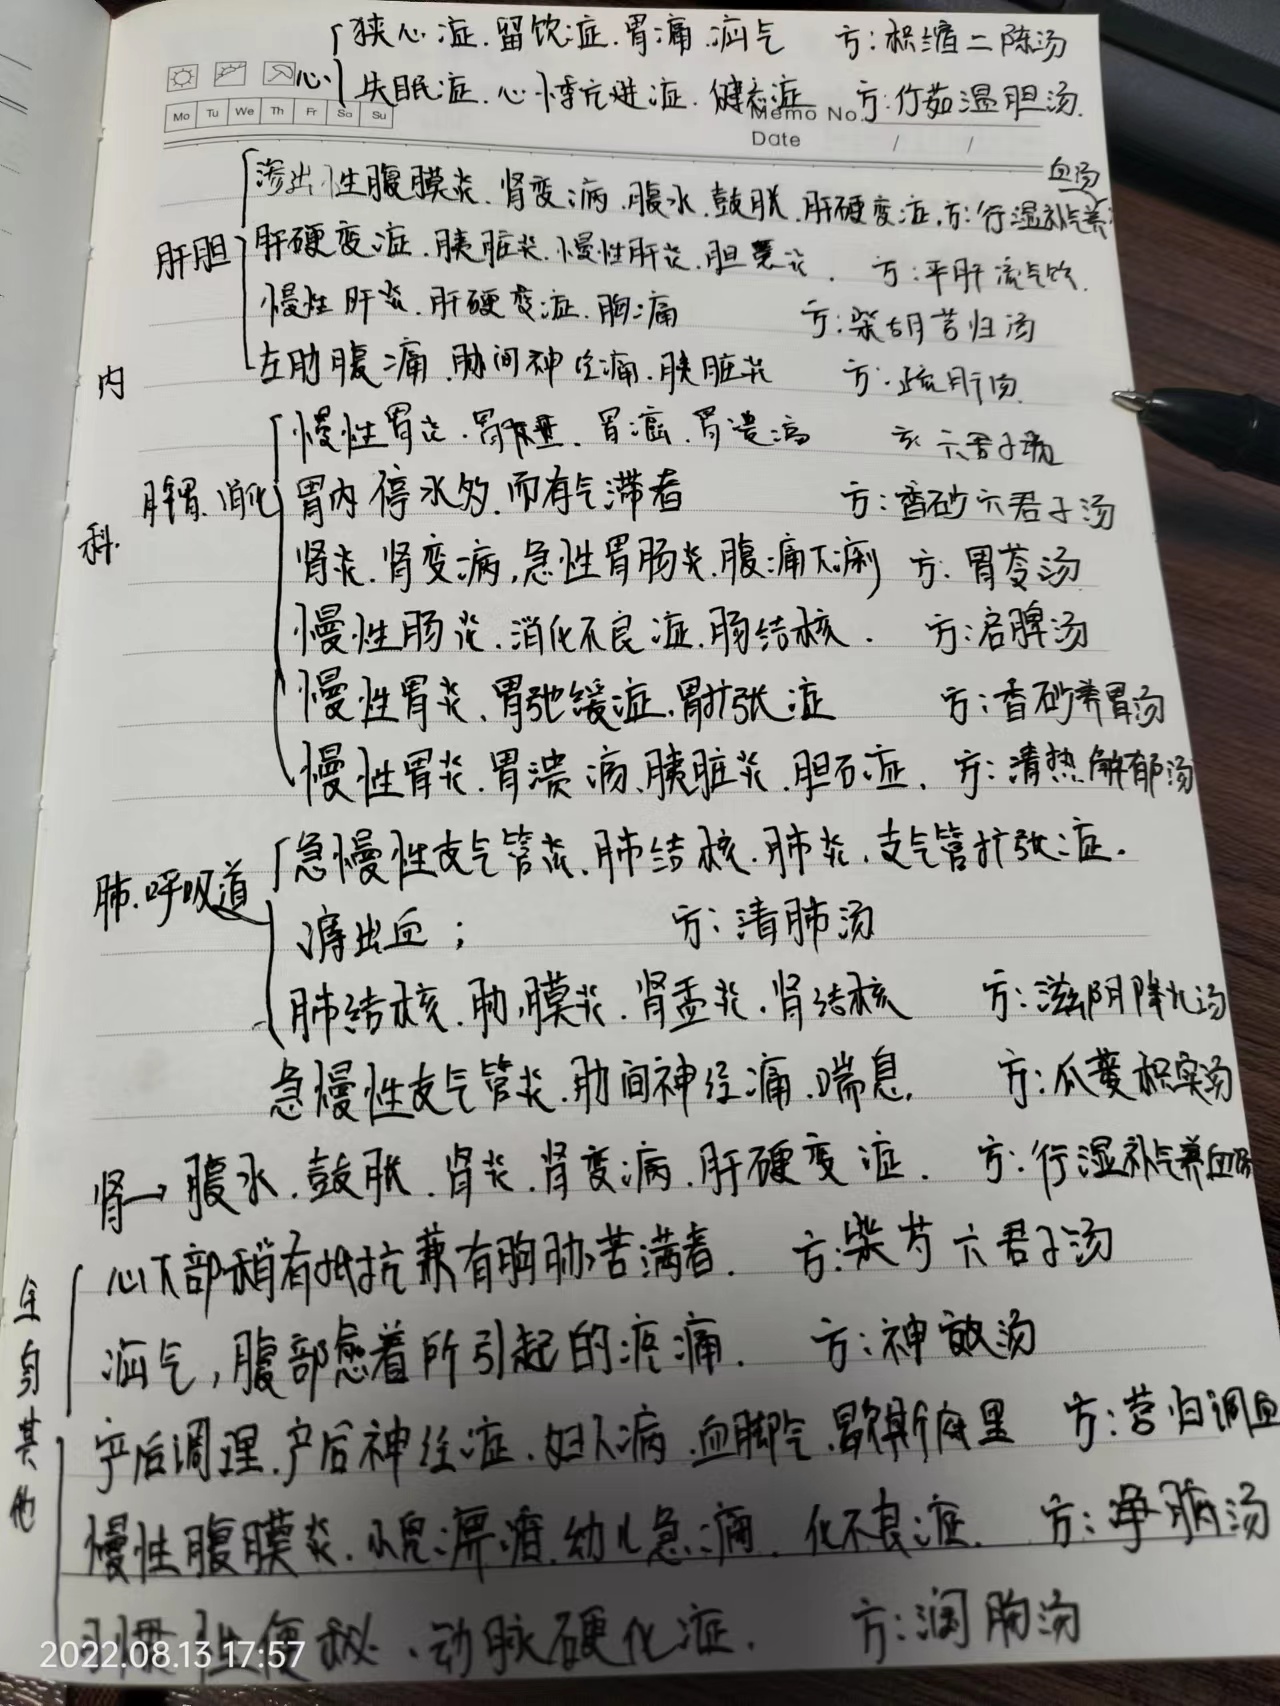 狭心症.留饮症.胃痛.疝气 方:枳缩二陈汤
心 失眠症.心悸亢进症.健忘症 方:竹茹温胆汤.
Mo Tu We Th Fr Sa Su
Memo No.
Date / /
血汤
渗出性腹膜炎.肾变病.腹水.鼓胀.肝硬变症.方:行湿补气养
肝胆 肝硬变症.胰脏炎.慢性肝炎.胆囊炎. 方:平肝流气饮.
慢性肝炎.肝硬变症.胸痛 方:柴胡芎归汤
左肋腹痛.肋间神经痛.胰脏炎 方:疏肝汤.
内
慢性胃炎.胃下垂.胃癌.胃溃疡 方:六君子汤
脾胃.消化 胃内停水的.而有气滞者 方:香砂六君子汤
科.
肾炎.肾变病,急性胃肠炎.腹痛下痢 方:胃苓汤
慢性肠炎.消化不良症.肠结核. 方:启脾汤
慢性胃炎.胃弛缓症.胃扩张症 方:香砂养胃汤
慢性胃炎.胃溃疡.胰脏炎.胆石症. 方:清热解郁汤
急慢性支气管炎.肺结核.肺炎.支气管扩张症.
肺.呼吸道
出血; 方:清肺汤
肺结核.肋膜炎.肾盂炎.肾结核 方:滋阴降火汤
急慢性支气管炎.肋间神经痛.喘息. 方:瓜蒌枳实汤
肾→腹水.鼓胀.肾炎.肾变病.肝硬变症. 方:行湿补气养血汤
心下部稍有抵抗兼有胸胁苦满者. 方:柴芍六君子汤
疝气,腹部愈着所引起的疼痛. 方:神效汤
全身其他
产后调理.产后神经症.妇人病.血脚气.歇斯底里 方:芎归调血
慢性腹膜炎.小儿.幼儿急痛.化不良症. 方:净腑汤
性便秘.动脉硬化症. 方:润肠汤
2022.08.13 17:57